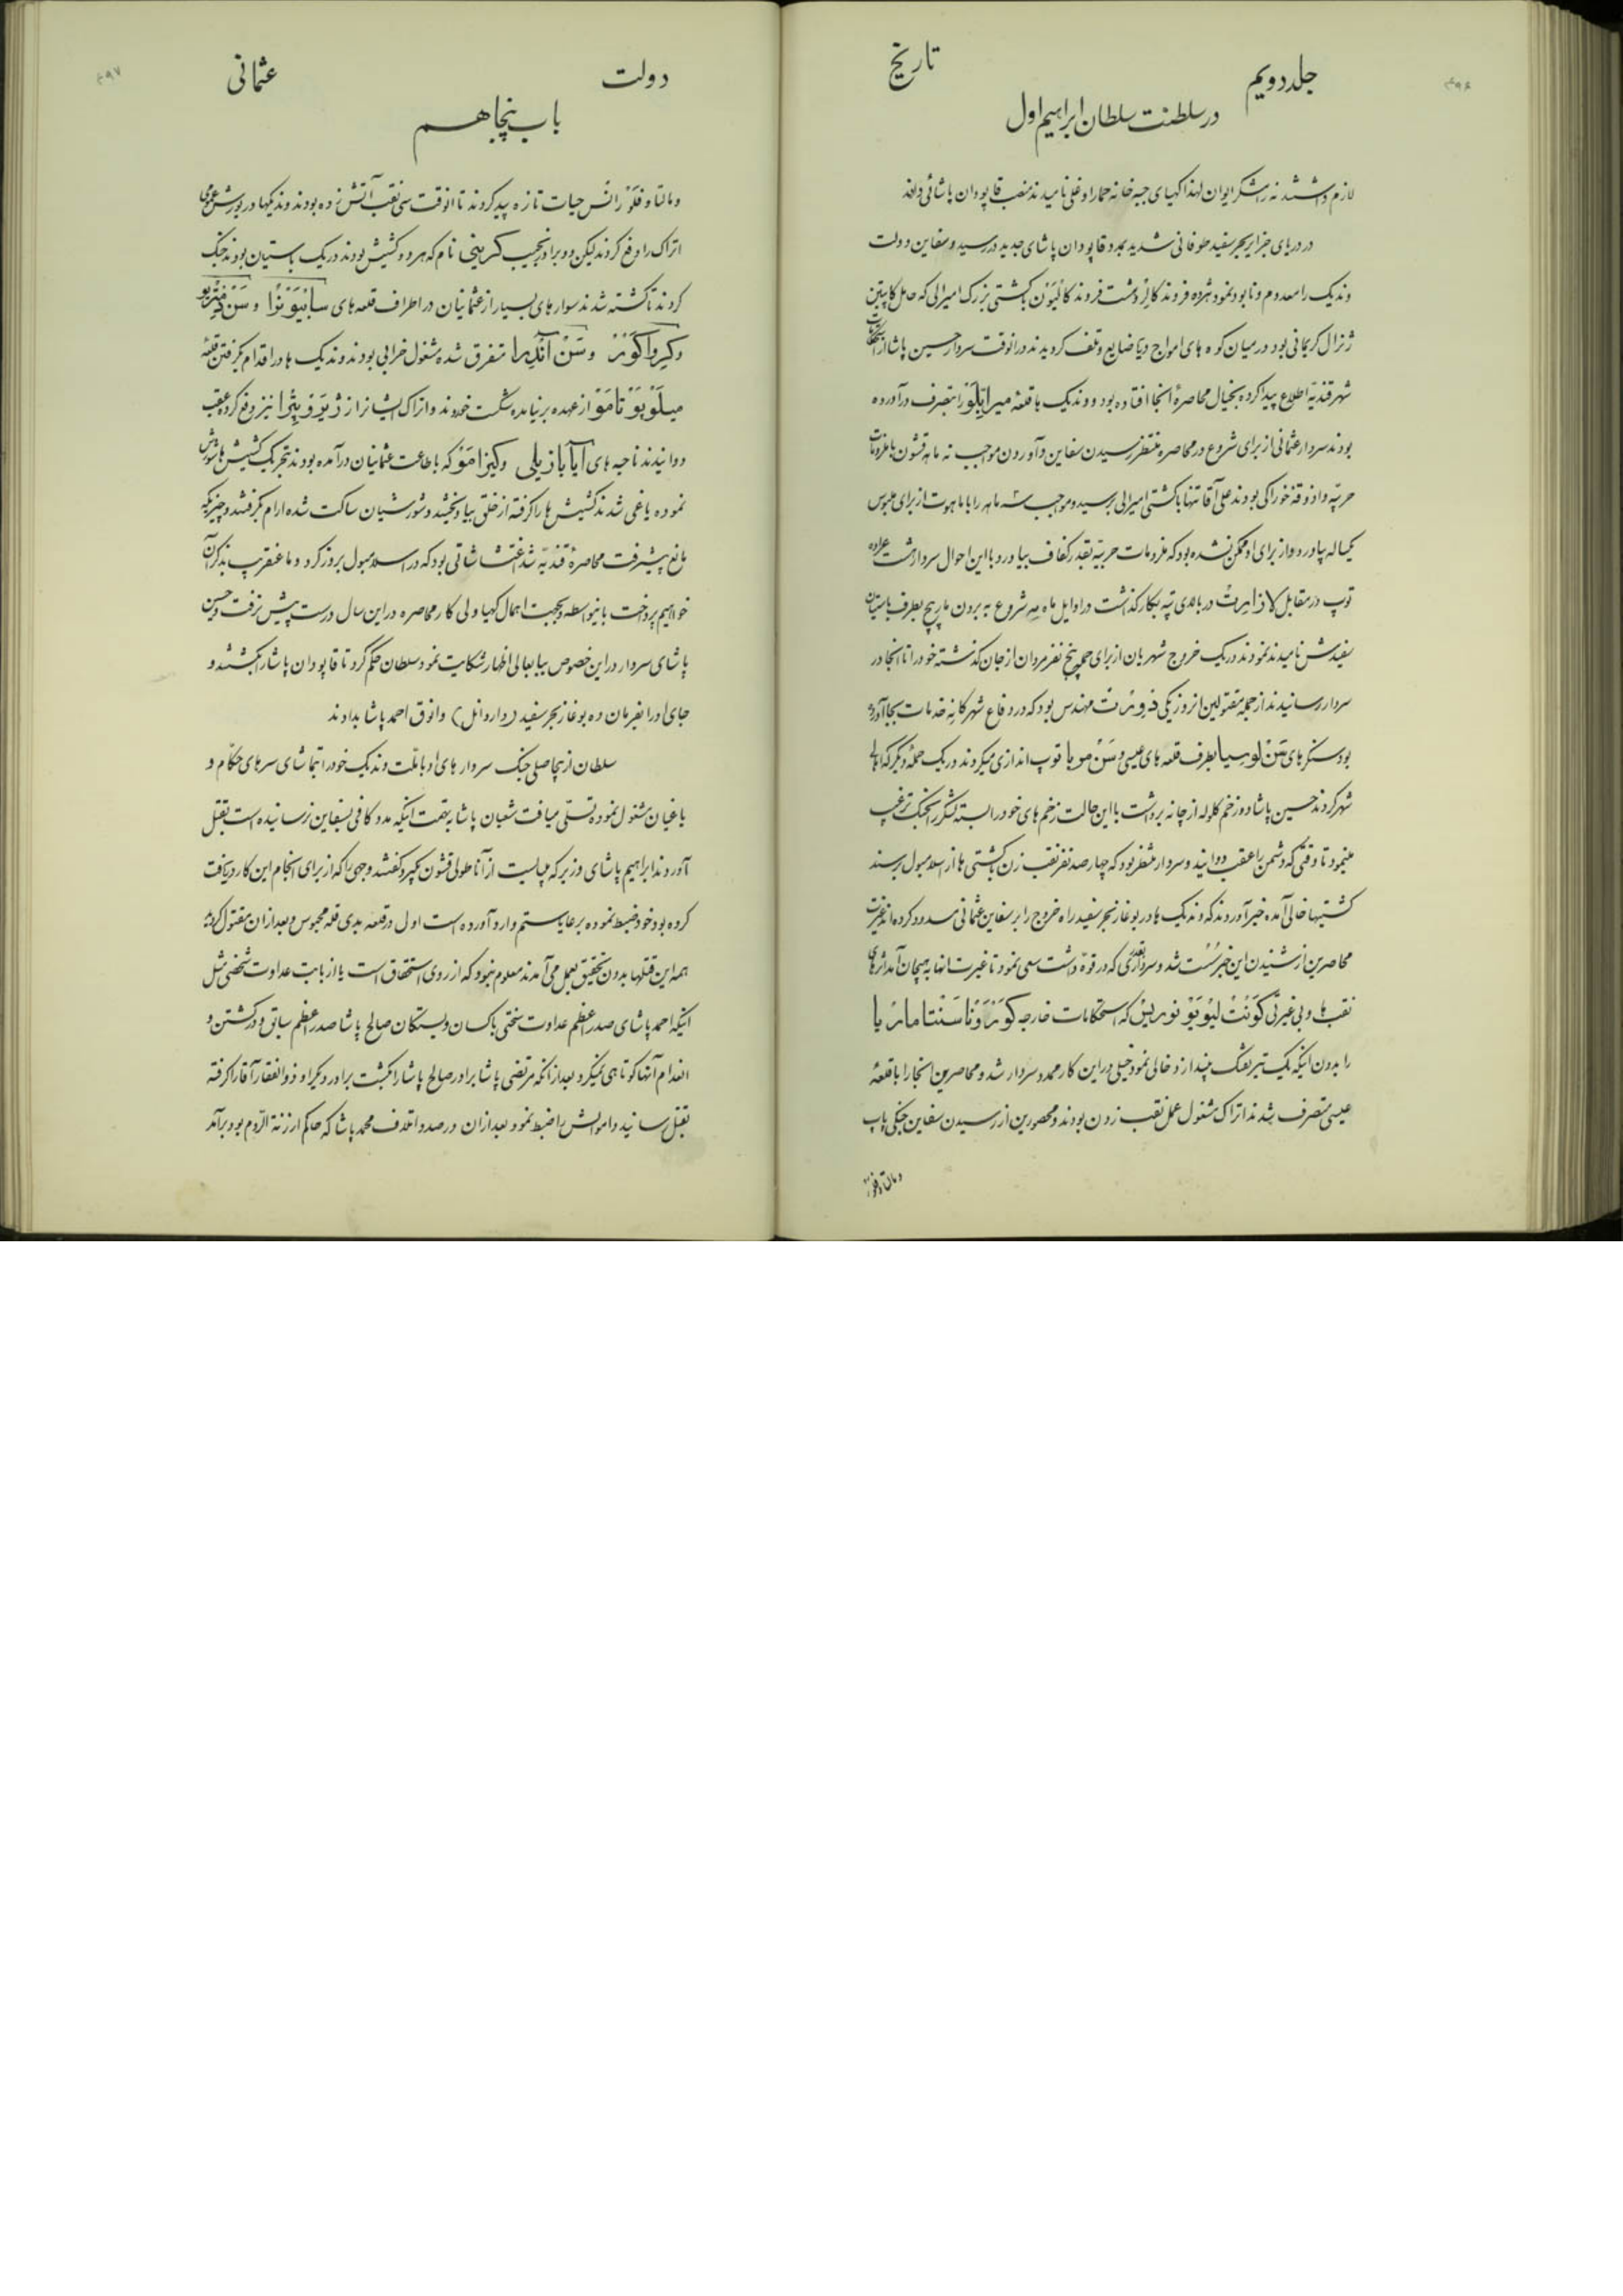 ۴۹۶
جلد دویم
تاریخ
در سلطنت سلطان ابراهیم اول
لازم داشتند نه لشکر ایوان لهذا کهیای جبه خانه حمار اوغلی نامیده منصب قاپودان پاشائی دادند
در دریای جزایر بحر سفید طوفانی شدید بمدد قاپودان پاشای جدید در رسید و سفاین دولت
وندیک را معدوم و نابود نمود هژده فروند کالر و هشت فروند کالیون با کشتی بزرک امیرالی که حامل کاپیتن
ژنرال کریمانی بود در میان کوه های امواج دریا ضایع و تلف کردیدند در انوقت سردار حسین پاشا از
شهر قندیه اطلاع پیدا کرده بخیال محاصرهٔ انجا افتاده بود و وندیک ها قلعهٔ میرابلو را متصرف درآورده
بودند سردار عثمانی از برای شروع در محاصره منتظر رسیدن سفاین و آوردن مواجب نه ماهه قشون با ملزومات
حربیه و اذوقهٔ خوراکی بودند علی آقا تنها با کشتی امیرالی برسید و مواجب سه ماهه را با ماهوت از برای ملبوس
یکساله بیاورد و از برای او ممکن نشده بود که ملزومات حربیه بقدر کفاف بیاورد با این احوال سردار هشت عراده
توپ در مقابل لازارت در بالای تپه بکار کذاشت در اوایل ماه مه شروع به بردن مارپیچ بطرف باستیان
سفیدش نامیدند نمودند در یک خروج شهریان از برای حمله پنج نفر مردان از جان کذشته خود را تا انجا در
سردار رسانیدند از جمله مقتولین انروز یکی مهندس بود که در دفاع شهر کانه خدمات بجا آورده
بود سنکرهای سن لوسیا بطرف قلعه های عیسی و سن موبا توپ اندازی میکردند در یک حملهٔ دیکر که اهالی
شهر کردند حسین پاشا دو زخم کلوله از چانه برداشت با این حالت زخم های خود را بسته لشکر را بجنک ترغیب
مینمود تا وقتی که دشمن را عقب دوانید و سردار منتظر بود که چهار صد نفر نقب زن با کشتی ها از اسلامبول برسند
کشتیها خالی آمده خبر آوردند که وندیک ها در بوغاز بحر سفید راه خروج را بر سفاین عثمانی مسدود کرده اند غیرت
محاصرین از شنیدن این خبر سست شد و سردار بقدری که در قوه داشت سعی نمود تا غیرت انها به هیجان آمد اثرهای
نقب ها و بی غیرتی کونت لیو یو نوریس که استحکامات خارجه کورونا سنتا ماریا
را بدون اینکه یک تیر تفنک بیندازد خالی نمود خیلی در این کار ممد و سردار شد و محاصرین انجا را با قلعهٔ
عیسی متصرف شدند اتراک مشغول عمل نقب زدن بودند و محصورین از رسیدن سفاین جنکی پاپ
و مالتا و فلو
۴۹۷
دولت
عثمانی
باب پنجاهم
و مالتا و فلورانس حیات تازه پیدا کردند تا انوقت سی نقب آتش زده بودند وندیکیها در یورش عمومی
اتراک را دفع کردند لیکن دو برادر نجیب کریمینی نام که هر دو کشیش بودند در یک باستیان بودند جنک
کردند تا کشته شدند سوارهای بسیار از عثمانیان در اطراف قلعه های سابیونرا و سن
و کیرواکونر و سن اندریا متفرق شده مشغول خرابی بودند وندیک ها در اقدام بکرفتن قلعه
میلوپوتامو از عهده برنیامده شکست خوردند و اتراک ایشانرا از نیز دفع کرده عقب
دوانیدند ناحیه های ایاباز یلی و کیزامو که باطاعت عثمانیان درآمده بودند بتحریک کشیش ها شورش
نموده یاغی شدند کشیش ها را کرفته از حلق بیاویختند و شورشیان ساکت شده ارام کرفتند و چیزیکه
مانع پیشرفت محاصرهٔ قندیه شد اغتشاشاتی بود که در اسلامبول بروز کرد و ما عنقریب بذکر آن
خواهیم پرداخت باینواسطه و بجهت اهمال کهیا ولی کار محاصره در این سال درست پیش نرفت و حسین
پاشای سردار در این خصوص ببابعالی اظهار شکایت نمود سلطان حکم کرد تا قاپودان پاشا را بکشند و
جای او را بفرمان ده بوغاز بحر سفید (داردانل) وانوق احمد پاشا بدادند
سلطان از بیحاصلی جنک سردارهای او با ملت وندیک خود را بتماشای سرهای حکام و
یاغیان مشغول نموده تسلی میافت شعبان پاشا بتهمت اینکه مدد کافی بسفاین نرسانیده است بقتل
آوردند ابراهیم پاشای وزیر که میبایست از آناطولی قشون بکیرد کفتند وجهی را که از برای انجام این کار دریافت
کرده بود خود ضبط نموده بر عایا ستم وارد آورده است اول در قلعه یدی قله محبوس و بعد از ان مقتول کردید
همه این قتلها بدون تحقیق بعمل می آمدند معلوم نبود که از روی استحقاق است یا از بابت عداوت شخصی مثل
اینکه احمد پاشای صدر اعظم عداوت سختی با کسان و بستکان صالح پاشا صدر اعظم سابق و در کشتن و
انعدام آنها کوتاهی نمیکرد بعد از انکه مرتضی پاشا برادر صالح پاشا را بکشت برادر دیکر او ذوالفقار آقا را کرفته
بقتل رسانید و اموالش را ضبط نمود بعد از ان درصدد اتلاف محمد پاشا که حاکم ارزنة الروم بود برآمد